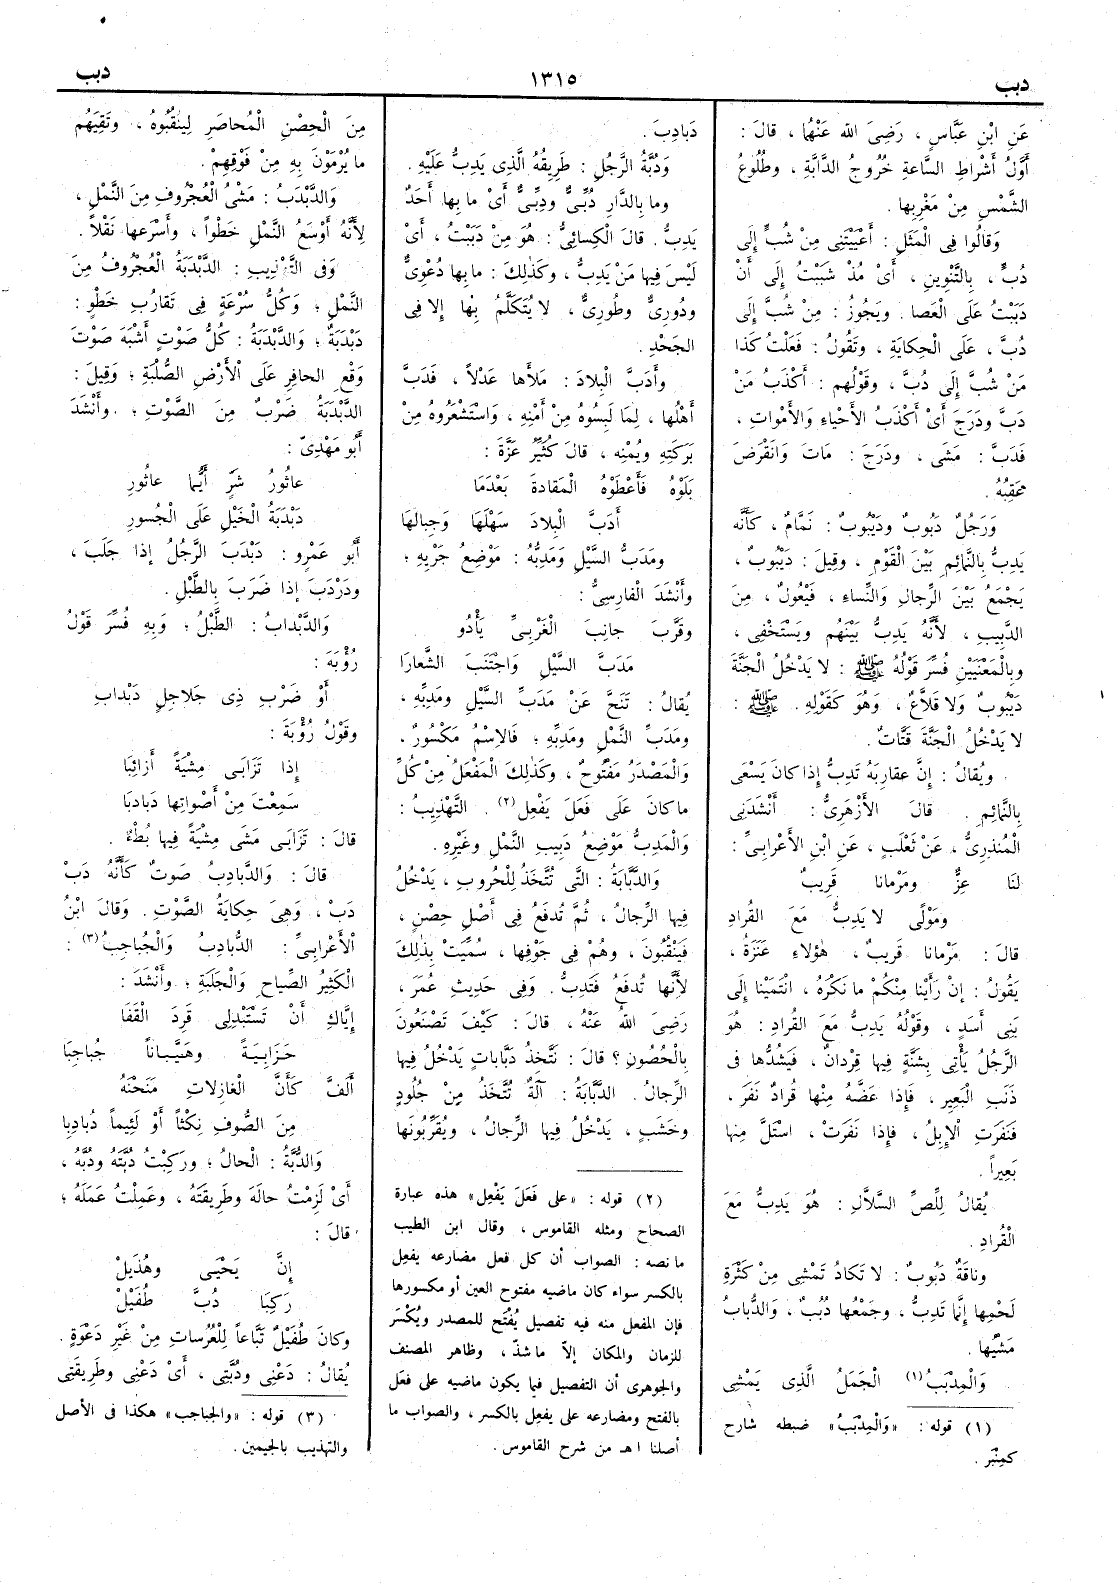 دبب
١٣١٥
دبب
عَنِ ابْنِ عَبَّاسٍ ، رَضِىَ اللّٰه عَنْهُا ، قالَ :
أَوَّلُ أَشْراطِ السَّاعَةِ خُرُوجُ الدَّابَّةِ ، وطُلُوعُ
الشَّمْسِ مِنْ مَغْرِبِها .
وَقالُوا فِى الْمَثَلِ : أَعْيَيْتَنِى مِنْ شُبٍّ إِلَى
دُبٍّ ، بِالتَّنْوِينِ ، أَىْ مُذْ شَبَبْتُ إِلَى أَنْ
دَبَبْتُ عَلَى الْعَصا . ويَجُوزُ : مِنْ شُبَّ إِلَى
دُبَّ ، عَلَى الْحِكايَةِ ، وتَقُولُ : فَعَلْتُ كَذا
مِنْ شُبَّ إِلَى دُبَّ ، وقَوْلُهم : أَكْذَبُ مَنْ
دَبَّ ودَرَجَ أَىْ أَكْذَبُ الأَحْياءِ والأَمْواتِ ،
فَدَبَّ : مَشَى ، ودَرَجَ : مَاتَ وَانْقَرَضَ
عَقِبُهُ .
وَرَجُلٌ دَبُوبٌ ودَيْبُوبٌ : نَمَّامٌ ، كَأَنَّه
يَدِبُّ بِالنَّمائِمِ بَيْنَ الْقَوْمِ ، وَقِيلَ : دَيْبُوبٌ ،
يَجْمَعُ بَيْنَ الرِّجالِ وَالنِّساءِ ، فَيْعُولٌ ، مِنَ
الدَّبِيبِ ، لأَنَّهُ يَدِبُّ بَيْنَهُم ويَسْتَخْفِى ،
وبِالْمَعْنَيَيْنِ فُسِّرَ قَوْلُهُ ﷺ : لا يَدْخُلُ الْجَنَّةَ
دَيْبُوبٌ وَلا قَلاَّعٌ ، وَهُوَ كَقَوْلِهِ . ﷺ :
لا يَدْخُلُ الْجَنَّةَ قَتَّاتٌ .
ويُقالُ : إِنَّ عقارِبَهُ تَدِبُّ إِذا كانَ يَسْعَى
بِالنَّمائِمِ . قالَ الأَزْهَرِىُّ : أَنْشَدَنِى
الْمُنْذِرِىُّ ، عَنْ ثَعْلَبٍ ، عَنِ ابْنِ الأَعْرابِىِّ :
لَنَا عِزٌّ ومَرْمانا قَرِيبٌ
ومَوْلًى لا يَدِبُّ مَعَ القُرادِ
قالَ : مَرْمانا قَرِيبٌ ، هٰؤلاءِ عَنَزَةُ ،
يَقُولُ : إِنْ رَأَيْنا مِنْكُمْ ما نَكْرَهُ ، انْتَمَيْنا إِلَى
بَنِى أَسَدٍ ، وقَوْلُهُ يَدِبُّ مَعَ القُرادِ : هُوَ
الرَّجُلُ يَأْتِى بِشَنَّةٍ فِيها قِرْدانٌ ، فَيَشُدُّها فى
ذَنَبِ الْبَعِيرِ ، فَإِذا عَضَّهُ مِنْها قُرادٌ نَفَرَ ،
فَنَفَرَتِ الإِبِلُ ، فَإِذا نَفَرَتْ ، اسْتَلَّ مِنها
بَعِيراً .
يُقالُ لِلِّصِّ السَّلاَّلِ : هُوَ يَدِبُّ مَعَ
الْقُرادِ .
وناقَةٌ دَبُوبٌ : لا تَكادُ تَمْشِى مِنْ كَثْرَةِ
لَحْمِها إِنَّما تَدِبُّ ، وجَمْعُها دُبُبٌ ، وَالدُّبابُ
مَشْيُها .
وَالْمِدْبَبُ (١) الْجَمَلُ الَّذِى يَمْشِى
(١) قوله : «والْمِدْبَبُ» ضبطه شارح
كمِنْبَر .
دَبادِبَ .
وَدُبَّةُ الرَّجُلِ : طَرِيقُهُ الَّذِى يَدِبُّ عَلَيْهِ .
وما بِالدَّارِ دُبِّىٌّ ودِبِّىٌّ أَىْ ما بِها أَحَدٌ
يَدِبُّ . قالَ الْكِسائِىُّ : هُوَ مِنْ دَبَبْتُ ، أَىْ
لَيْسَ فِيها مَنْ يَدِبُّ ، وكَذٰلِكَ : ما بِها دُعْوِىٌّ
ودُورِىٌّ وطُورِىٌّ ، لا يُتَكَلَّمُ بِها إِلا فِى
الجَحْدِ .
وأَدَبَّ الْبِلادَ : مَلأَها عَدْلاً ، فَدَبَّ
أَهْلُها ، لِمَا لَبِسُوهُ مِنْ أَمْنِهِ ، وَاسْتَشْعَرُوهُ مِنْ
بَرَكَتِهِ ويُمْنِه ، قالَ كُثَيِّرُ عَزَّةَ :
بَلَوْهُ فَأَعْطَوْهُ الْمَقادَةَ بَعْدَمَا
أَدَبَّ الْبِلادَ سَهْلَهَا وَجِبالَها
ومَدَبُّ السَّيْلِ وَمَدِبُّهُ : مَوْضِعُ جَرْيِهِ ؛
وأَنْشَدَ الْفارِسِىُّ :
وقَرَّبَ جانِبَ الْغَرْبِىِّ يَأْدُو
مَدَبَّ السَّيْلِ وَاجْتَنَبَ الشَّعارَا
يُقالُ : تَنَحَّ عَنْ مَدَبِّ السَّيْلِ ومَدِبِّهِ ،
ومَدَبِّ النَّمْلِ ومَدِبِّهِ ؛ فَالاِسْمُ مَكْسُورٌ ،
وَالْمَصْدَرُ مَفْتُوحٌ ، وكَذٰلِكَ الْمَفْعَلُ مِنْ كُلِّ
ما كانَ عَلَى فَعَلَ يَفْعِل (٢) . التَّهْذِيبُ :
وَالْمَدِبُّ مَوْضِعُ دَبِيبِ النَّمْلِ وغَيْرِهِ .
وَالدَّبَّابَةُ : الَّتِى تُتَّخَذُ لِلْحُروبِ ، يَدْخُلُ
فِيها الرِّجالُ ، ثُمَّ تُدفَعُ فِى أَصْلِ حِصْنٍ ،
فَيَنْقُبُونَ ، وهُمْ فِى جَوْفِها ، سُمِّيَتْ بِذٰلِكَ
لأَنَّها تُدفَعُ فَتَدِبُّ . وَفِى حَدِيثِ عُمَرَ ،
رَضِىَ اللّٰهُ عَنْهُ ، قالَ : كَيْفَ تَصْنَعُونَ
بِالْحُصُونِ ؟ قالَ : نَتَّخِذُ دَبَّاباتٍ يَدْخُلُ فِيها
الرِّجالُ . الدَّبَّابَةُ : آلَةٌ تُتَّخَذُ مِنْ جُلُودٍ
وخَشَبٍ ، يَدْخُلُ فِيها الرِّجالُ ، ويُقَرِّبُونَها
(٢) قوله : «على فَعَلَ يَفْعِل» هذه عبارة
الصحاح ومثله القاموس ، وقال ابن الطيب
ما نصه : الصواب أن كل فعل مضارعه يفعِل
بالكسر سواء كان ماضيه مفتوح العين أو مكسورها
فإن المفعل منه فيه تفصيل يُفْتح للمصدر ويُكْسَر
للزمان والمكان إلاّ ما شذّ ، وظاهر المصنف
والجوهرى أن التفصيل فيما يكون ماضيه على فَعَل
بالفتح ومضارعه على يفعِل بالكسر ، والصواب ما
أصلنا اهـ من شرح القاموس .
مِنَ الْحِصْنِ الْمُحاصَرِ لِينقُبُوهُ ، وتَقِيَهُم
ما يُرْمَوْنَ بِهِ مِنْ فَوْقِهِمْ .
وَالدَّبْدَبُ : مَشْىُ الْعُجْرُوفِ مِنَ النَّمْلِ ،
لِأَنَّهُ أَوْسَعُ النَّمْلِ خَطْواً ، وأَسْرَعها نَقْلاً .
وَفى التَّهْذِيبِ : الدَّبْدَبَةُ الْعُجْرُوفُ مِنَ
النَّمْلِ ؛ وَكُلُّ سُرْعَةٍ فِى تَقارُبِ خَطْوٍ :
دَبْدَبَةٌ ؛ وَالدَّبْدَبَةُ : كُلُّ صَوْتٍ أَشْبَهَ صَوْتَ
وَقْعِ الحافِرِ عَلَى الْأَرْضِ الصُّلْبَةِ ؛ وَقِيلَ :
الدَّبْدَبَةُ ضَرْبٌ مِنَ الصَّوْتِ ؛ وأَنْشَدَ
أَبُو مَهْدِىّ :
عاثُورُ شَرٍّ أَيُّما عاثُورِ
دَبْدَبَةَ الْخَيْلِ عَلَى الْجُسورِ
أَبُو عَمْرٍو : دَبْدَبَ الرَّجُلُ إِذا جَلَبَ ،
ودَرْدَبَ إِذا ضَرَبَ بِالطَّبْلِ .
وَالدَّبْدابُ : الطَّبْلُ ؛ وَبِهِ فُسِّرَ قَوْلُ
رُؤْبَةَ :
أَوْ ضَرْبِ ذِى جَلاجِلٍ دَبْدابِ
وقَوْلُ رُؤْبَةَ :
إِذا تَزَابَى مِشْيَةً أَزائِبَا
سَمِعْتَ مِنْ أَصْواتِها دَبادبَا
قالَ : تَزَابَى مَشَى مِشْيَةً فِيها بُطْءٌ .
قالَ : وَالدَّبادِبُ صَوتٌ كَأَنَّهُ دَبْ
دَبْ ، وَهِىَ حِكايَةُ الصَّوْتِ . وَقالَ ابْنُ
الْأَعْرابِىِّ : الدُّبادِبُ وَالْجُباجِبُ (٣) :
الْكَثِيرُ الصِّياحِ وَالْجَلَبَةِ ؛ وأَنْشَدَ :
إِيَّاكِ أَنْ تَسْتَبْدِلِى قَرِدَ الْقَفَا
حَزَابِيَةً وهَيَّباناً جُباجِبَا
أَلَفَّ كَأَنَّ الْغازِلاتِ مَنَحْنَهُ
مِنَ الصُّوفِ نِكْثاً أَوْ لَئِيماً دُبادِبا
وَالدُّبَّةُ : الْحالُ ؛ ورَكِبْتُ دُبَّتَهُ ودُبَّهُ ،
أَىْ لَزِمْتُ حالَهُ وطَرِيقَتَهُ ، وعَمِلْتُ عَمَلَهُ ؛
قالَ :
إِنَّ يَحْيَى وهُذَيلْ
رَكِبَا دُبَّ طُفَيْلْ
وكانَ طُفَيْلٌ تَبَّاعاً لِلْعُرُساتِ مِنْ غَيْرِ دَعْوَةٍ .
يُقالُ : دَعْنِى ودُبَّتِى ، أَىْ دَعْنِى وطَرِيقَتِى
(٣) قوله : «والجباجب» هكذا فى الأصل
والتهذيب بالجيمين .